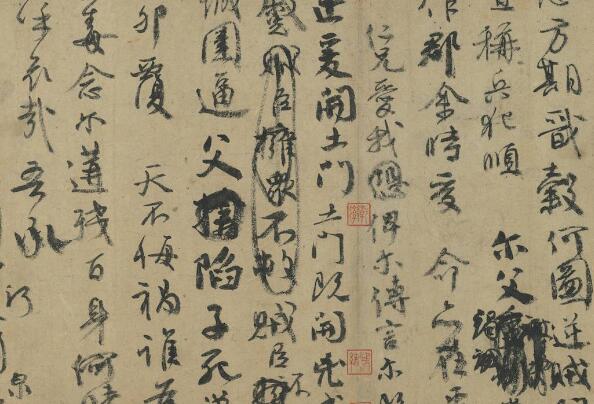 方期戩穀何圖逆賊
稱兵犯順爾父
作郡余時受命亦在平
仁兄愛我恐俾爾傳言爾既
爰開土門土門既開兇威
賊臣擁衆不救賊臣不
城圍逼父擒陷子死巢
卵覆天不悔禍誰為
毒念爾遘殘百身何贖
呼哀哉吾承